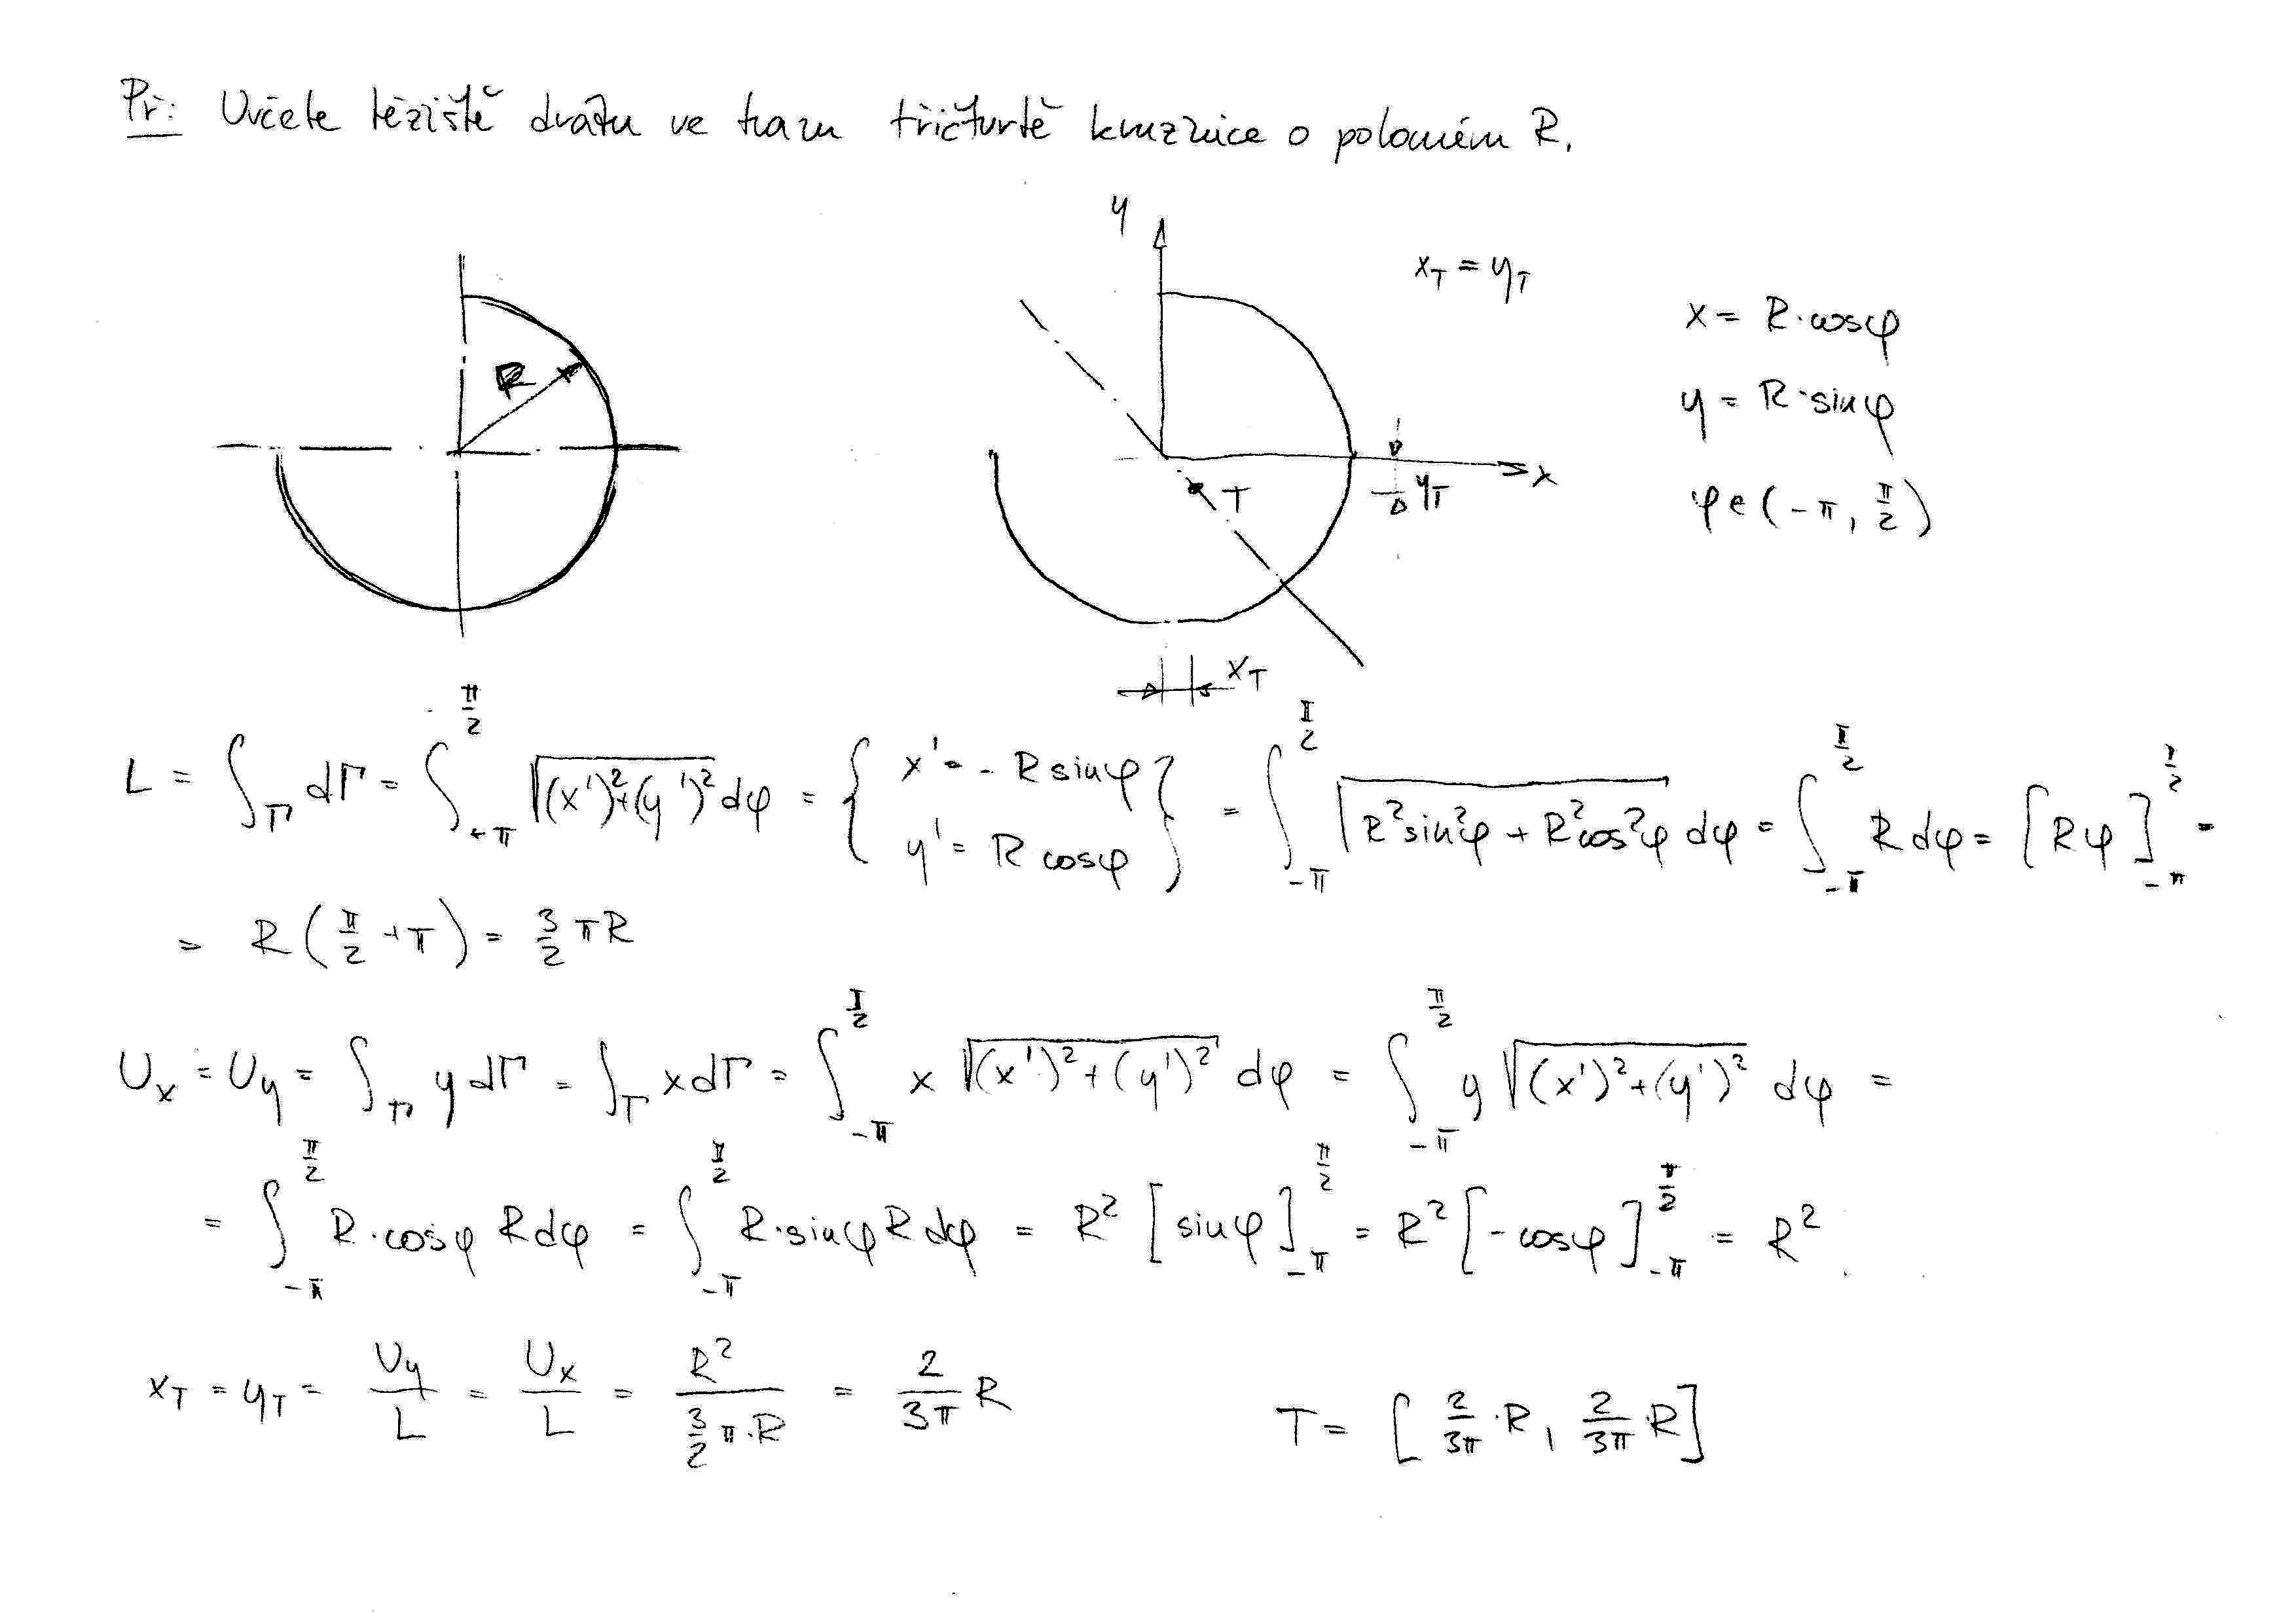 Př: Určete těžiště drátu ve tvaru tříčtvrtě kružnice o poloměru R.
R
y
x_T = y_T
x = R·cosφ
y = R·sinφ
φ ∈ (-π, π/2)
x
y_T
T
x_T
L = ∫_Γ dΓ = ∫_{-π}^{π/2} √((x')²+(y')²) dφ = { x' = - R sinφ ; y' = R cosφ } = ∫_{-π}^{π/2} √(R²sin²φ + R²cos²φ) dφ = ∫_{-π}^{π/2} R dφ = [Rφ]_{-π}^{π/2} =
= R(π/2 + π) = 3/2 πR
U_x = U_y = ∫_Γ y dΓ = ∫_Γ x dΓ = ∫_{-π}^{π/2} x √((x')²+(y')²) dφ = ∫_{-π}^{π/2} y √((x')²+(y')²) dφ =
= ∫_{-π}^{π/2} R·cosφ R dφ = ∫_{-π}^{π/2} R·sinφ R dφ = R² [sinφ]_{-π}^{π/2} = R² [-cosφ]_{-π}^{π/2} = R²
x_T = y_T = U_y/L = U_x/L = R²/(3/2 π·R) = 2/(3π) R
T = [2/(3π)·R, 2/(3π)·R]